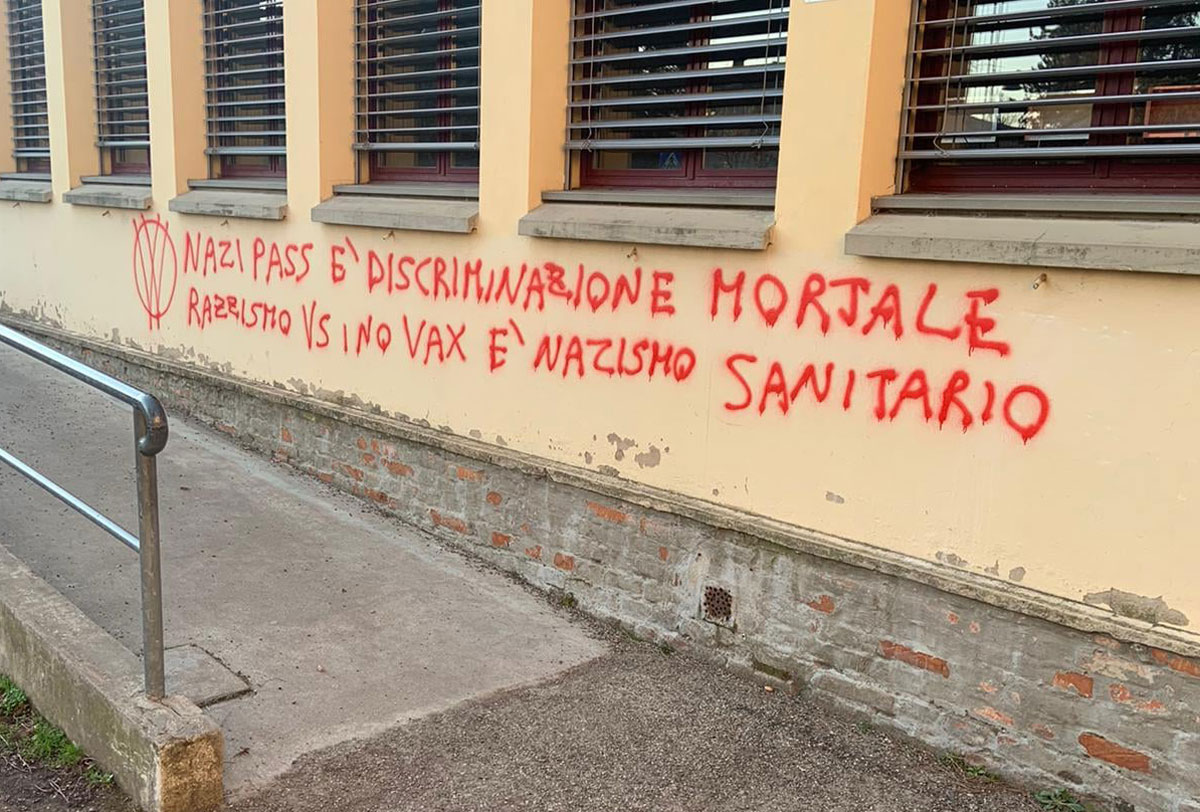 VV NAZI PASS E` DISCRIMINAZIONE MORTALE
RAZZISMO VS I NO VAX E` NAZISMO SANITARIO